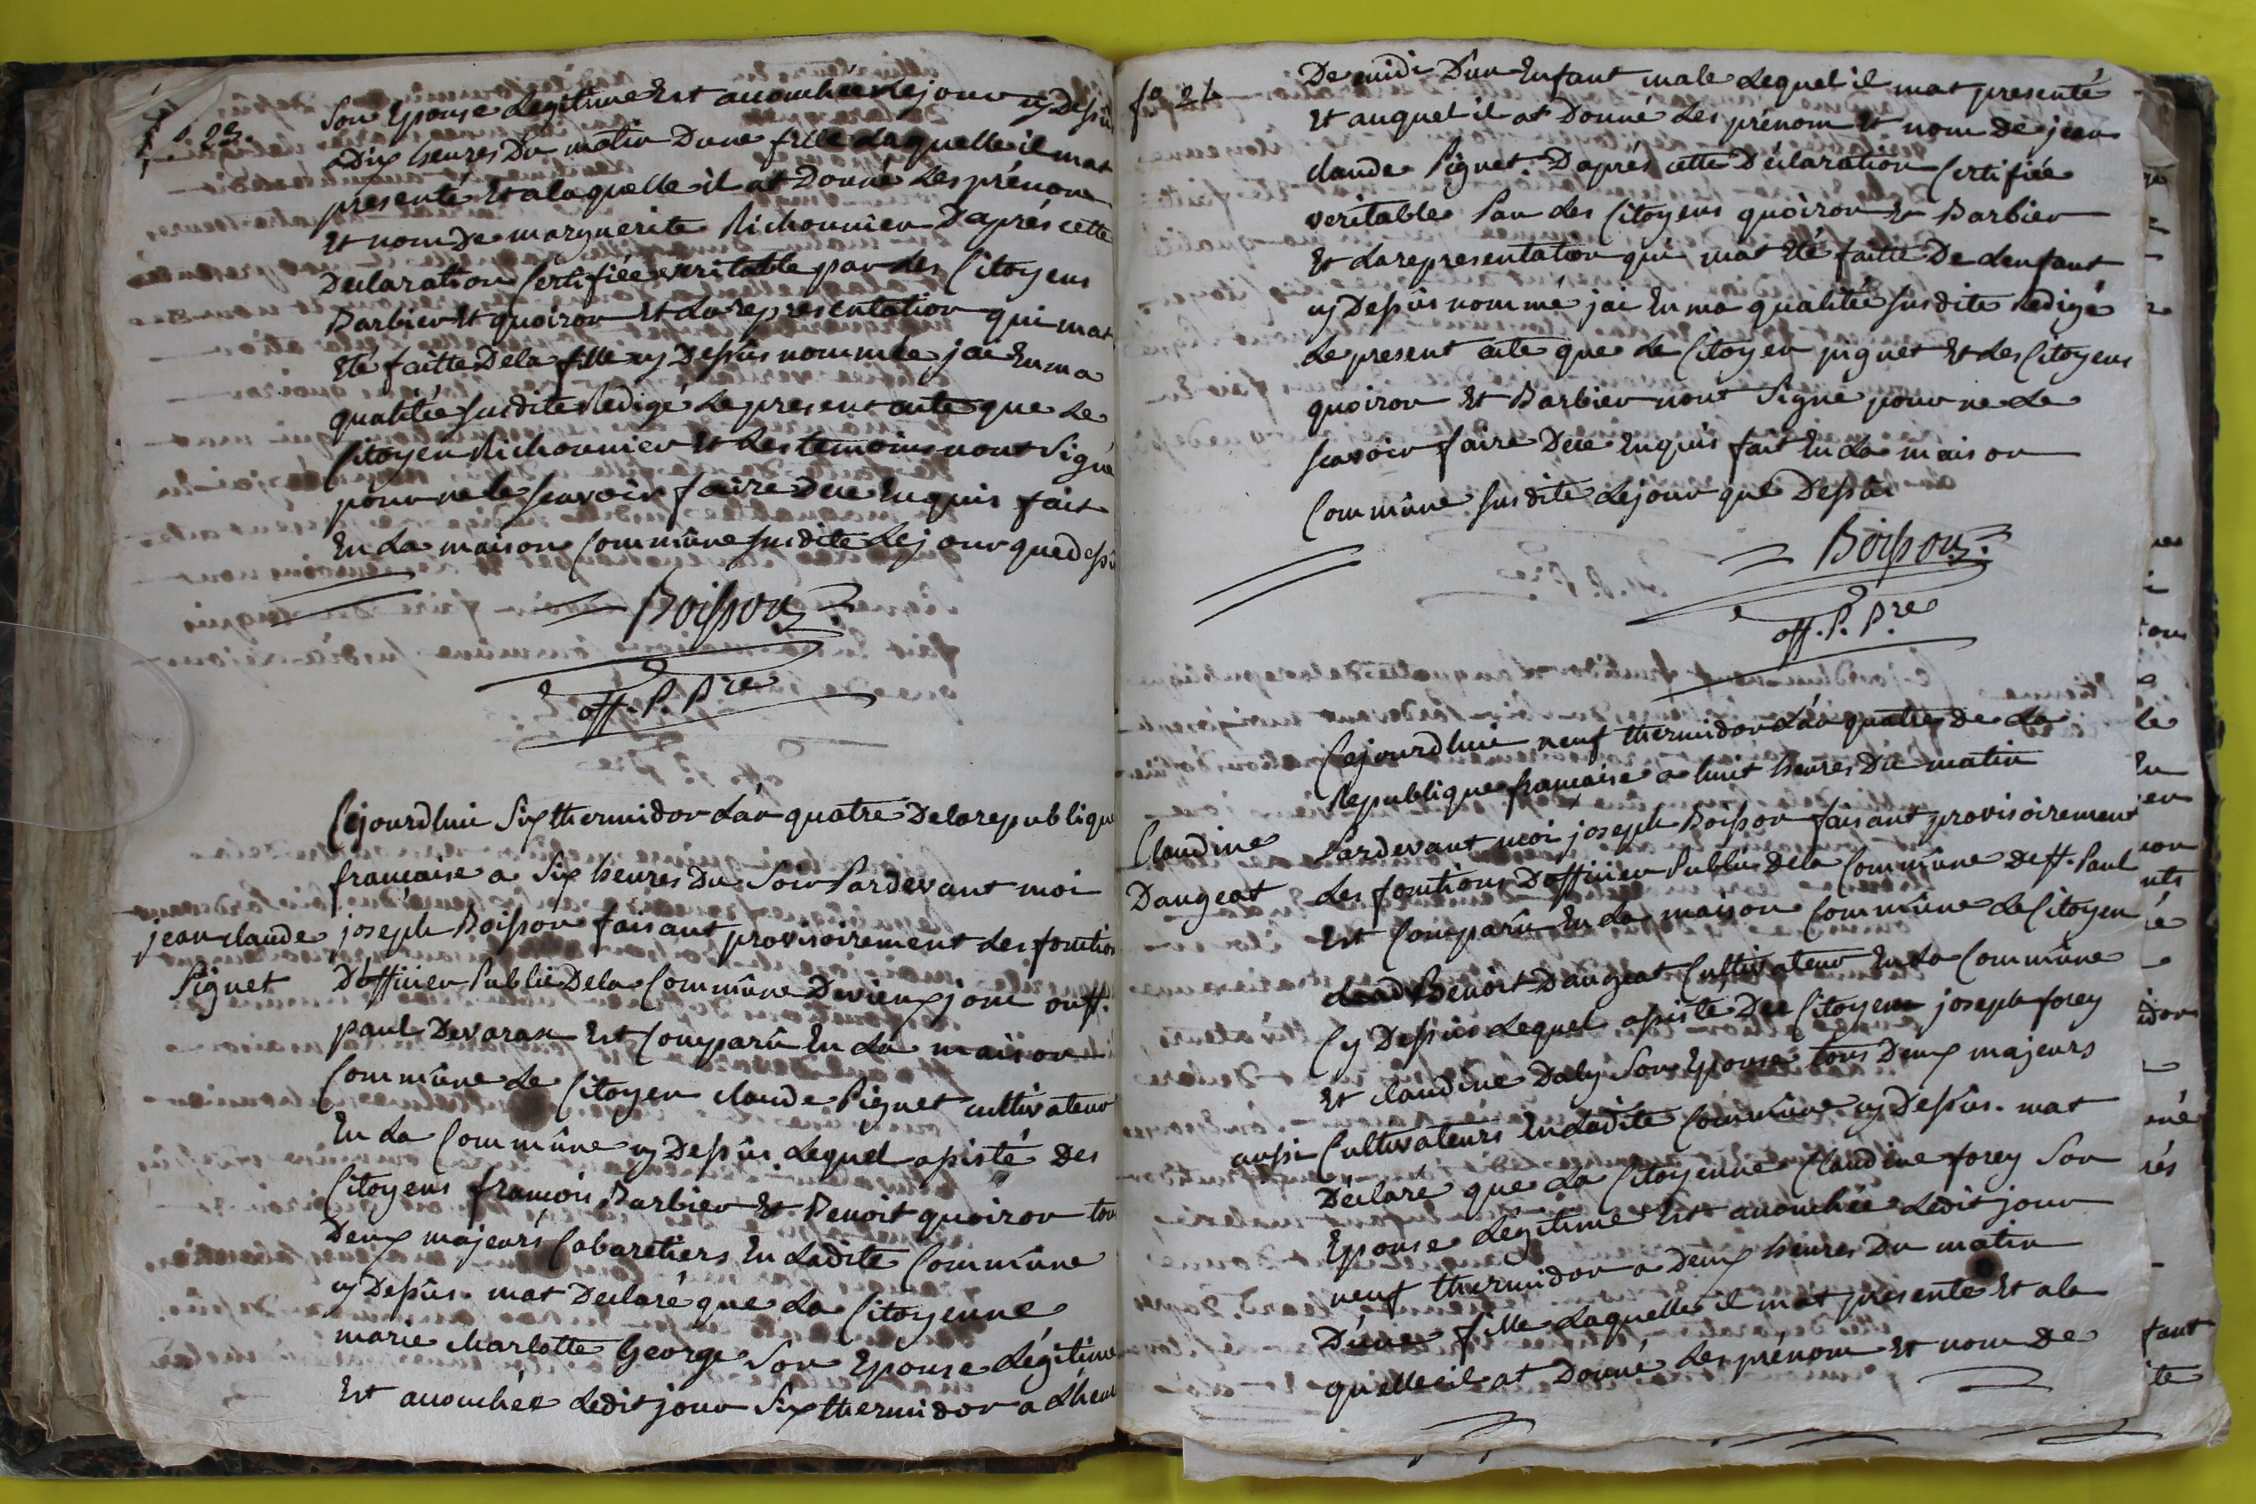 23.
Son Epouse Legitime Est accouchée Lejour cy Dessus
a Dix heures Du matin Dune fille Laquelle il mat
presenté Et a laquelle il at Donné Les prénom
Et nom De marguerite Richonnier D'aprés cette
Declaration Certifiée veritable par Les Citoyens
Barbier Et quoiron Et La representation qui mat
Eté faitte De la fille cy Dessus nommée jai En ma
qualitée susdite Redigé Le present acte que Le
Citoyen Richonnier Et Les temoins nont Signé
pour ne le Scavoir faire De ce Enquis fait
En La maison Commûne susdite Lejour que Dessus
Boisson
off. P. Pre
Cejourdhui Six thermidor L'an quatre De la republique
francaise a Six heures Du Soir Pardevant moi
jean claude
Pignet
joseph Boisson faisant provisoirement Les fonction
D'officier Public De la Commûne De vieux jonc ou st.
paul De varax Est Comparû En La maison
Commûne Le Citoyen claude Pignet cultivateur
En La Commûne cy Dessûs Lequel asisté Des
Citoyens francois Barbier Et Benoit quoiron tous
Deux majeurs Cabaretiers En Ladite Commûne
cy Dessûs. mat Declaré que La Citoyenne
marie Charlotte George Son Epouse Légitime
Est accouchée Ledit jour Six thermidor a L'heure
fo 24
De midi D'un Enfant male Lequel il mat presenté
Et auquel il at Donné Les prénom Et nom De jean
claude Pignet. D'aprés cette Déclaration Certifiée
veritable Par Les Citoyens quoiron Et Barbier
Et La representation qui mat Eté faitte De Lenfant
cy Dessus nommé jai En ma qualitée susdite Redigé
Le present acte que Le Citoyen pignet Et Les Citoyens
quoiron Et Barbier nont Signé pour ne Le
scavoir faire De ce Enquis fait En La maison
Commûne susdite Lejour que Dessûs
Boisson
off. P. Pre
Cejourdhui neuf thermidor L'an quatre De La
Republique francaise a huit heures Du matin
Claudine
Dangeat
Pardevant moi joseph Boisson faisant provisoirement
Les fonctions D'officier Public De la Commûne De st. Paul
Est Comparû En La maison Commûne Le Citoyen
Benoit Dangeat Cultivateur En La Commûne
Cy Dessus Lequel asisté Des Citoyens joseph forey
Et claudine Daly Son Epouse tous Deux majeurs
aussi Cultivateurs En Ladite Commûne cy Dessûs. mat
Déclaré que La Citoyenne Claudine forey Son
Epouse Légitime Est accouchée Ledit jour
neuf thermidor a Deux heures Du matin
D'une fille Laquelle il mat presenté Et a la
quelle il at Donné Les prénom Et nom De